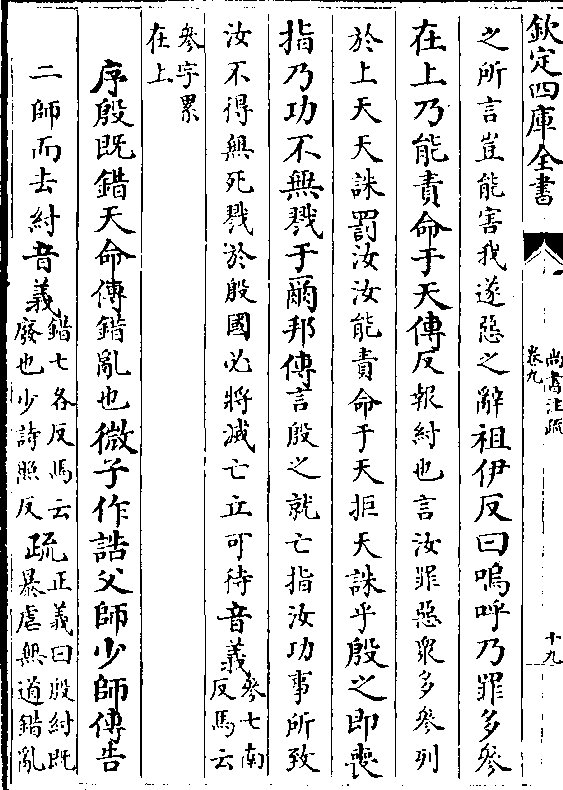 欽定四庫全書
尚書注疏
卷九
十九
之所言豈能害我遂惡之辭祖伊反曰嗚呼乃罪多參
在上乃能責命于天傳反報紂也言汝罪惡衆多參列
於上天天誅罰汝汝能責命于天拒天誅乎殷之即喪
指乃功不無戮于爾邦傳言殷之就亡指汝功事所致
汝不得無死戮於殷國必將滅亡立可待音義參七南反馬云
參字累在上
序殷既錯天命傳錯亂也微子作誥父師少師傳告
二師而去紂音義錯七各反馬云廢也少詩照反疏正義曰殷紂既暴虐無道錯亂